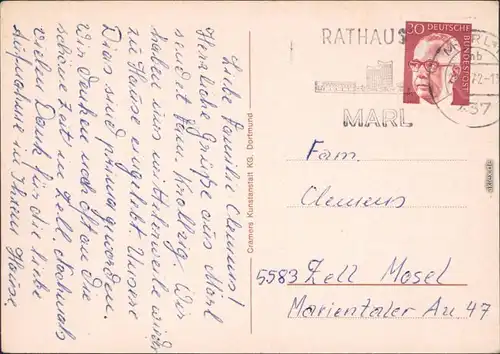 Liebe Familie Clemens!
Herzliche Grüße aus Marl
sendet Fam. Wir
haben uns mittlerweile wieder
zu Hause eingelebt. Unsere
Dias sind prima geworden.
Wir denken noch oft an die
schöne Zeit in Zell. Nochmals
vielen Dank für die liebe
Aufnahme in Ihrem Hause.
Cramers Kunstanstalt KG. Dortmund
RATHAUS
MARL
30
DEUTSCHE
BUNDESPOST
Fam.
Clemens
5583 Zell Mosel
Marientaler Au 47